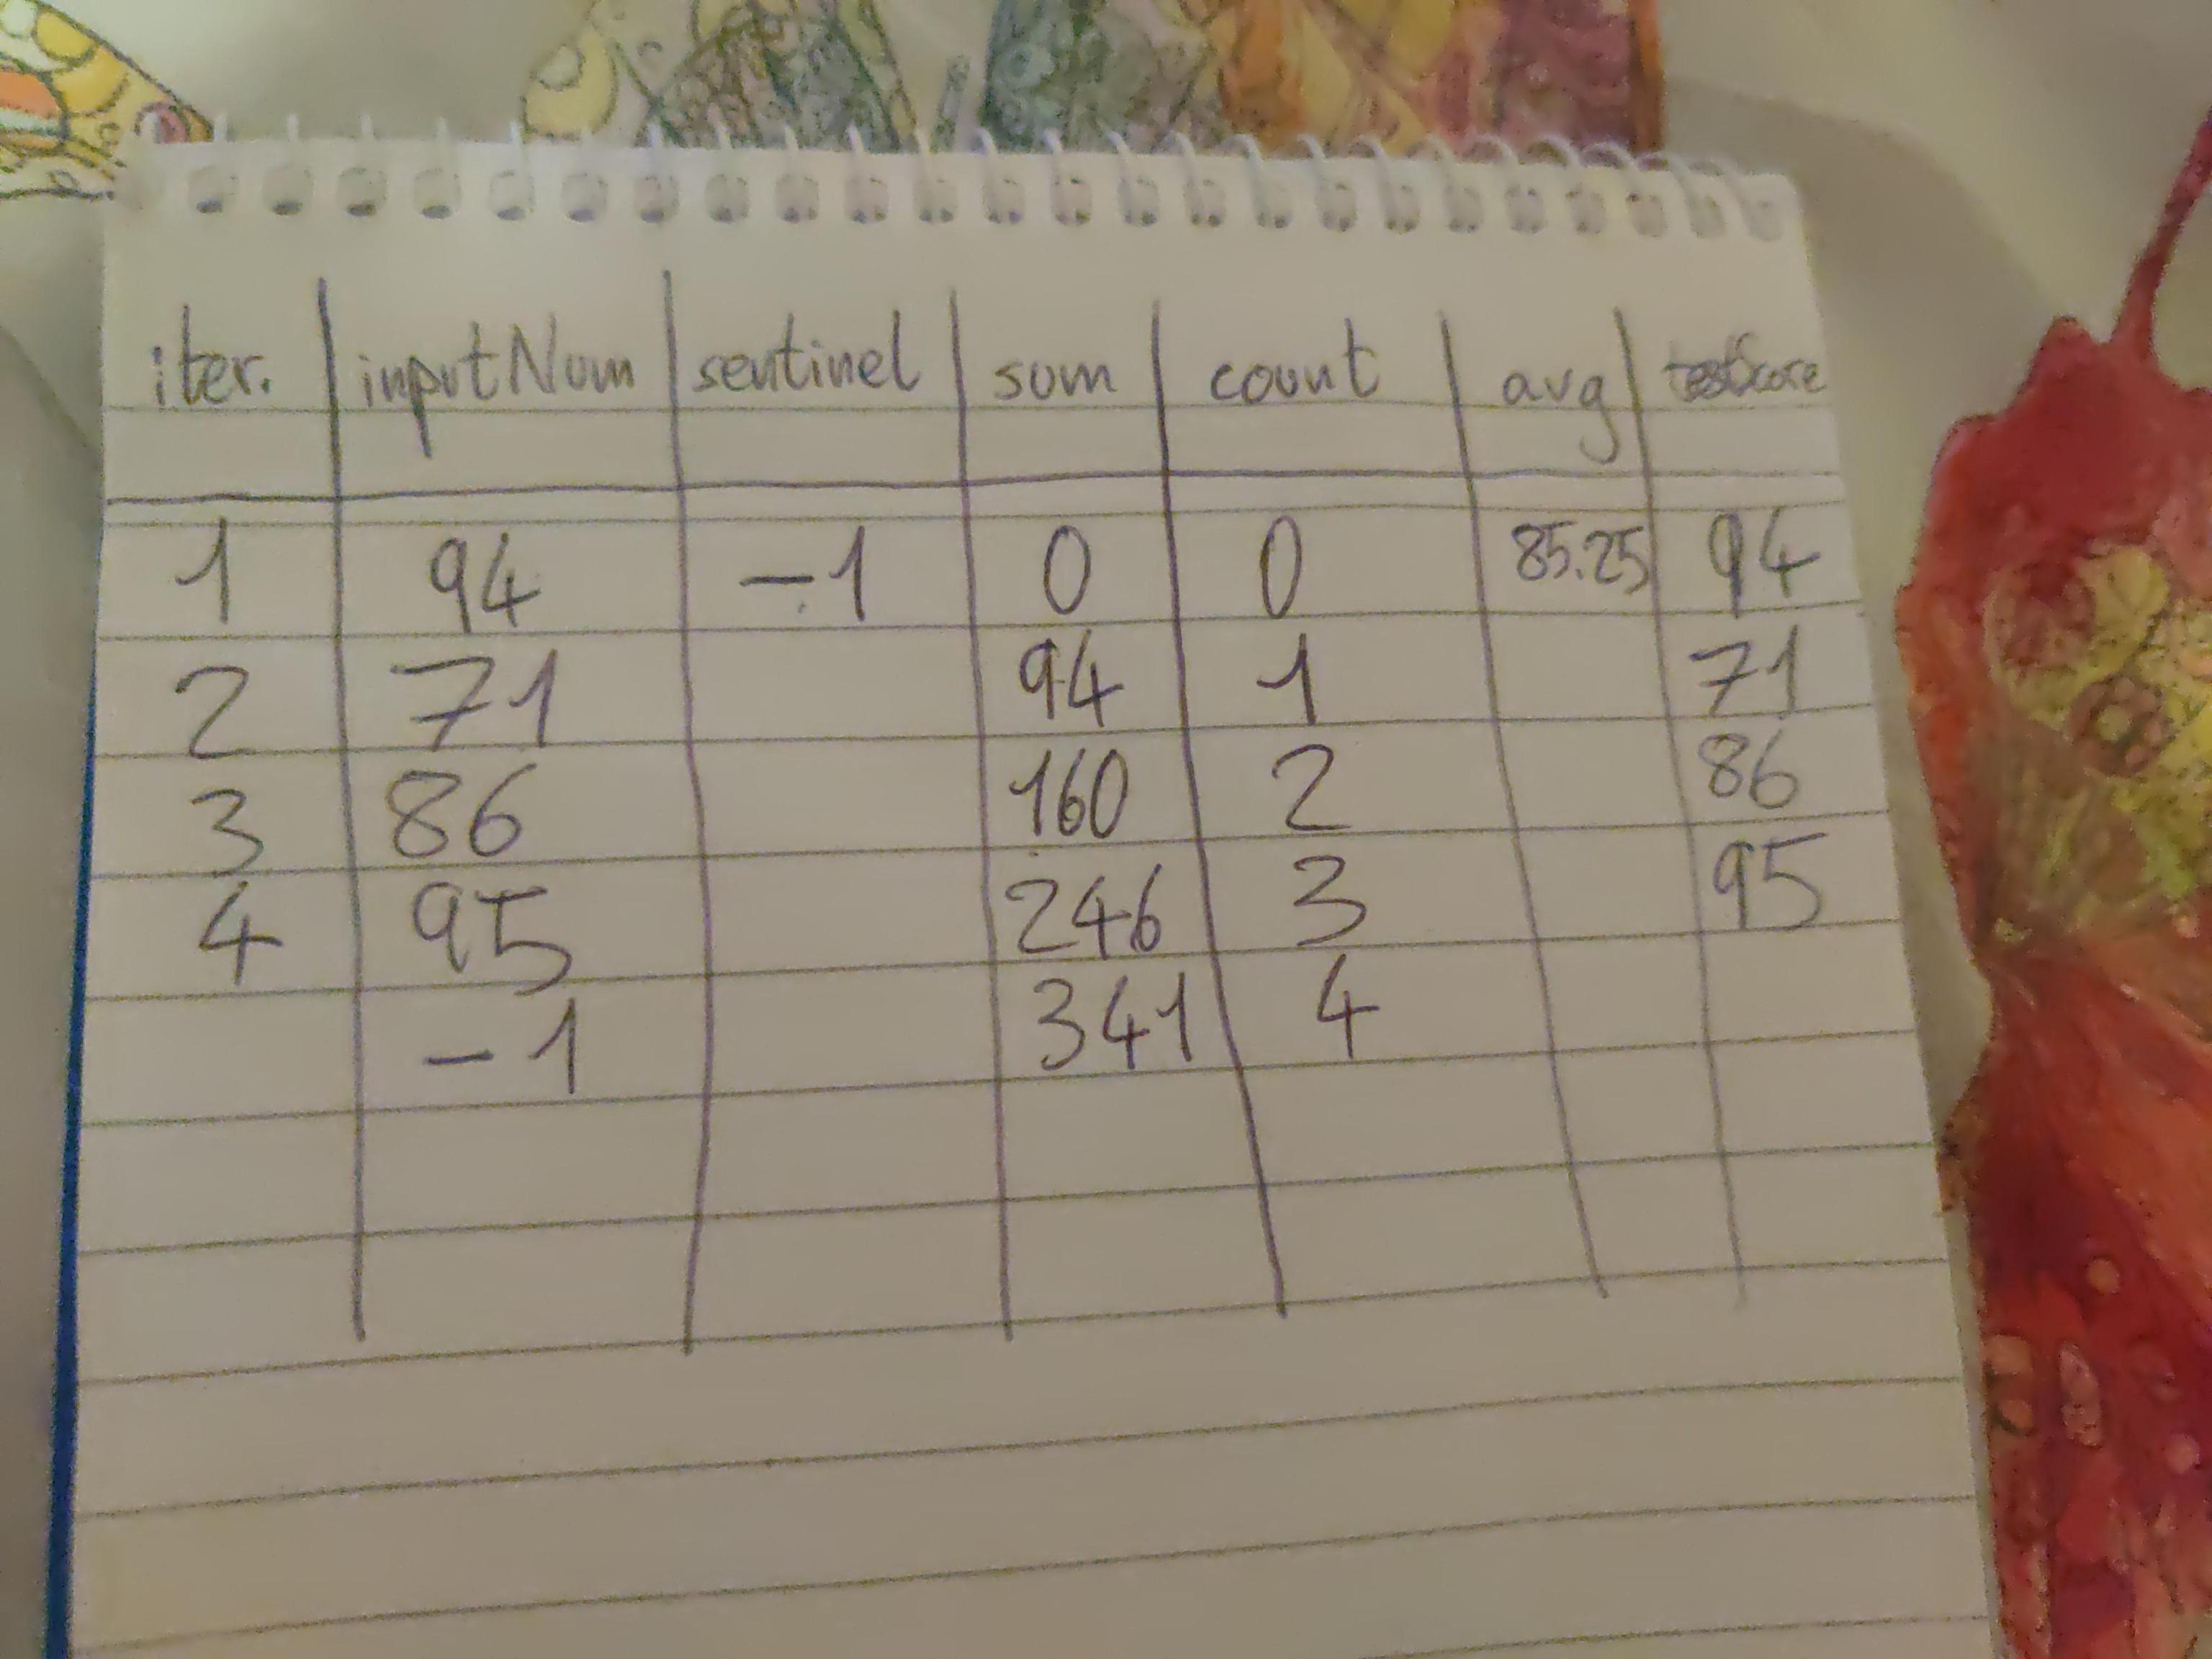 iter. inputNum sentinel sum count avg testScore
1 94 -1 0 0 85.25 94
2 71 94 1 71
3 86 160 2 86
4 95 246 3 95
-1 341 4